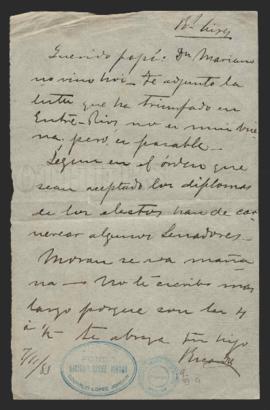 Bs. Aires
Querido papá: Dn Mariano
no vino hoi. Te adjunto la
lista que ha triunfado en
Entre-Rios no es mui bue
na, pero es pasable.
Segun en el órden que
sean aceptados los diplomas
de los electos han de ca
recer algunos Senadores.
Moran se va maña
na - No te escribo mas
largo porque son las 4
i ½ te abraza tu hijo
Ricardo
7/11/83
LOPEZ JORDAN